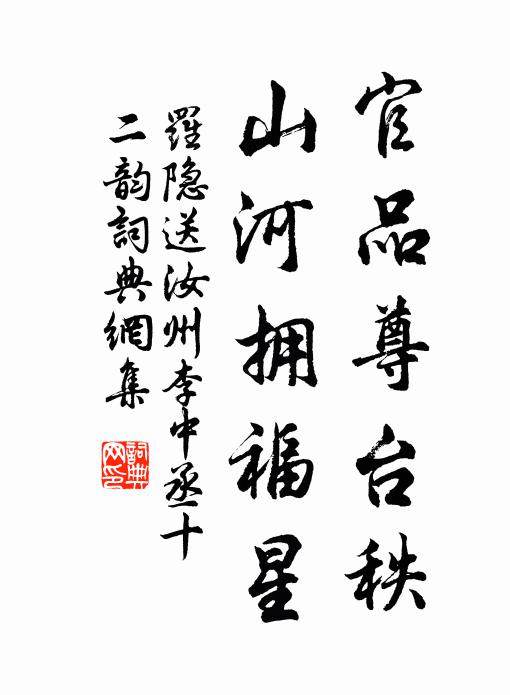 官品尊台秩
山河拥福星
羅隐送汝州李中丞十
二韵詞典網集
詞典網印